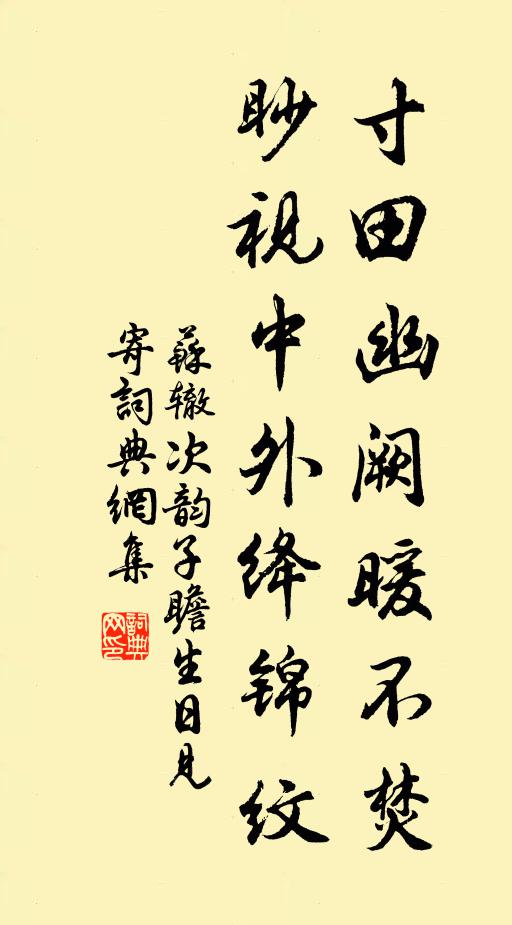 寸田幽阙暖不焚
眇视中外绛锦纹
蘇辙次韵子瞻生日見
寄詞典網集
詞典
网印